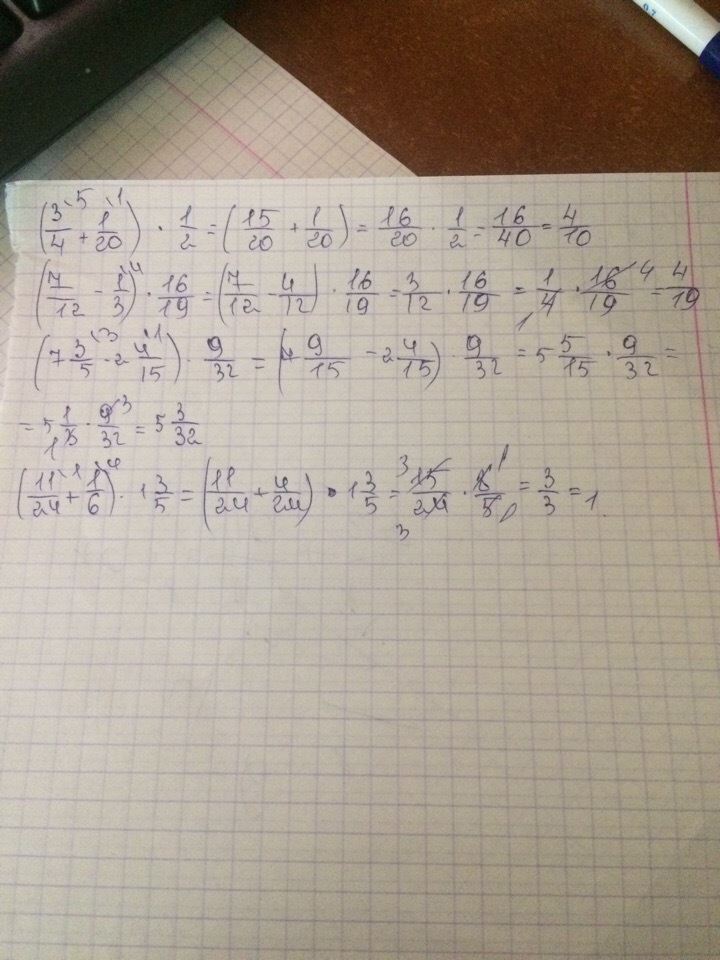 (3/4 \5 + 1/20 \1) · 1/2 = (15/20 + 1/20) = 16/20 · 1/2 = 16/40 = 4/10
(7/12 - 1/3 \4) · 16/19 = (7/12 - 4/12) · 16/19 = 3/12 · 16/19 = 1/4 1 · 16/19 4 = 4/19
(7 3/5 \3 - 2 4/15 \1) · 9/32 = (7 9/15 - 2 4/15) · 9/32 = 5 5/15 · 9/32 =
= 5 1/3 1 · 9/32 3 = 5 3/32
(11/24 \1 + 1/6 \4) · 1 3/5 = (11/24 + 4/24) · 1 3/5 = 3 15/24 3 · 8/5 1 = 3/3 = 1.
0,7